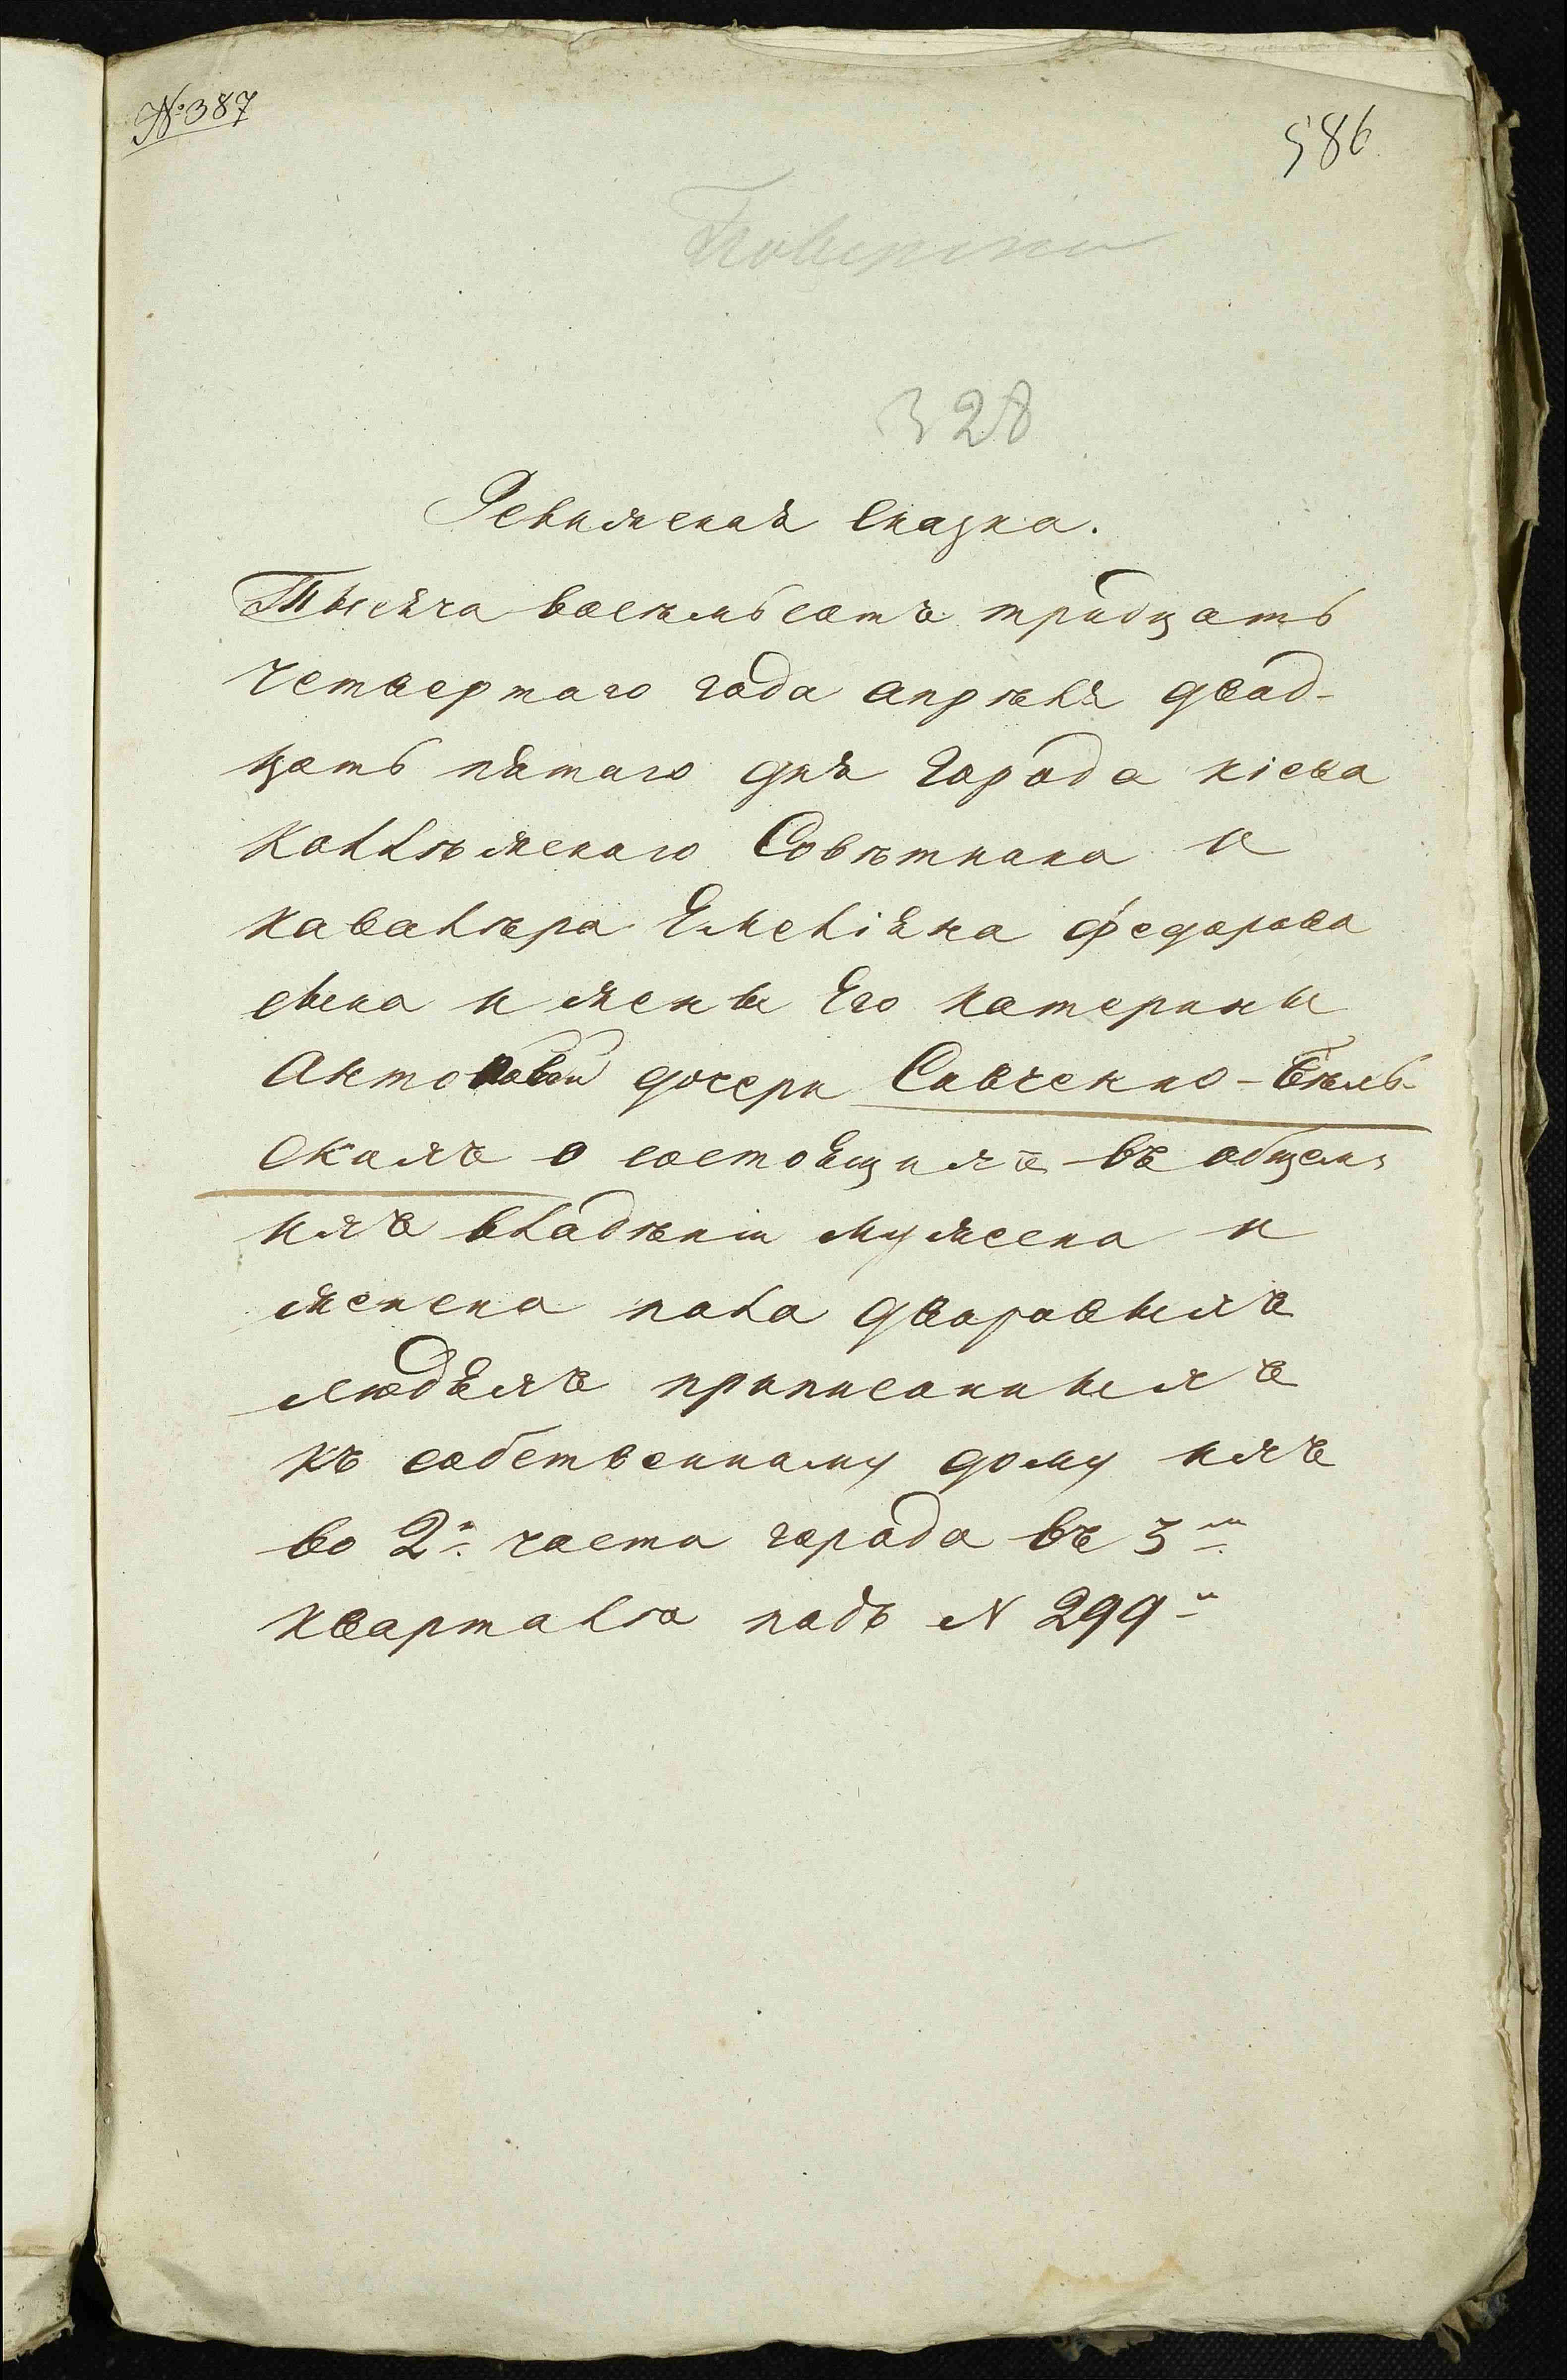 № 387
586
Повѣрена
328
Ревижская сказка.
Тысяча восѣмьсотъ тридцать
четвертаго года апрѣля двад-
цать пятаго дня города кіева
коллѣжскаго Совѣтника и
кавалѣра Емеліяна федорова
сына и жены Его катерины
Антоновой дочери Савченко-Бѣль-
скихъ о состоящихъ въ общемъ
ихъ владѣніи мужеска и
женска пола дворовыхъ
людяхъ приписанныхъ
къ собственному дому ихъ
во 2й части города въ 3мъ
кварталѣ подъ N 299м